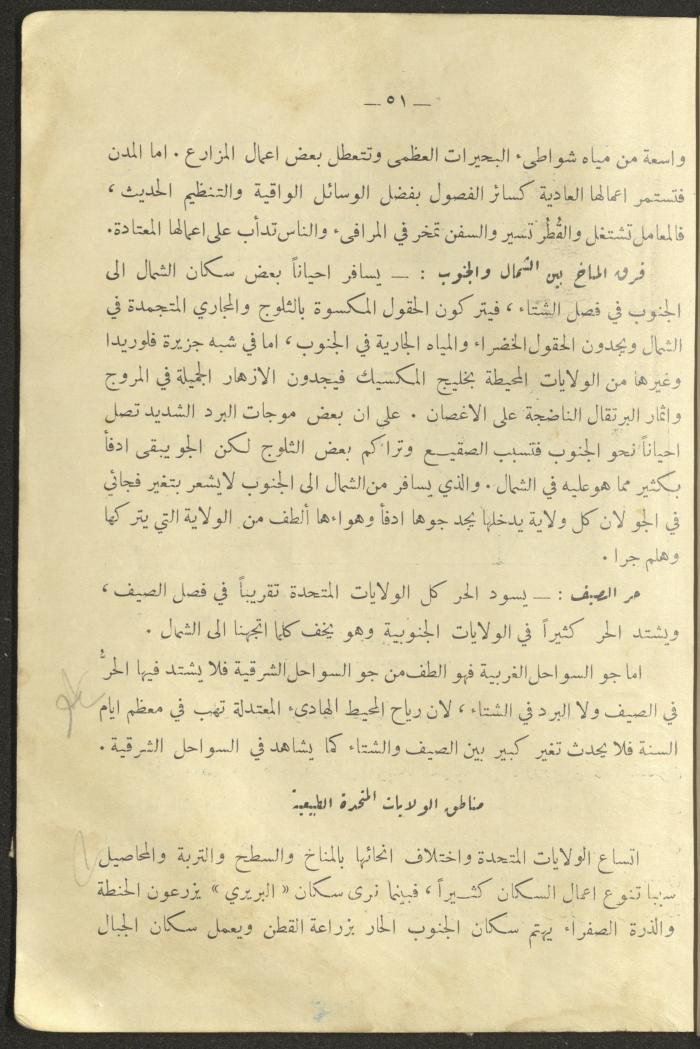 — ٥١ —
واسعة من مياه شواطىء البحيرات العظمى وتتعطل بعض اعمال المزارع . اما المدن
فتستمر اعمالها العادية كسائر الفصول بفضل الوسائل الواقية والتنظيم الحديث ،
فالمعامل تشتغل والقُطُر تسير والسفن تمخر في المرافىء والناس تدأب على اعمالها المعتادة.
فرق المناخ بين الشمال والجنوب : — يسافر احياناً بعض سكان الشمال الى
الجنوب في فصل الشتاء ، فيتركون الحقول المكسوة بالثلوج والمجاري المتجمدة في
الشمال ويجدون الحقول الخضراء والمياه الجارية في الجنوب ، اما في شبه جزيرة فلوريدا
وغيرها من الولايات المحيطة بخليج المكسيك فيجدون الازهار الجميلة في المروج
واثمار البرتقال الناضجة على الاغصان . على ان بعض موجات البرد الشديد تصل
احياناً نحو الجنوب فتسبب الصقيع وتراكم بعض الثلوج لكن الجو يبقى ادفأ
بكثير مما هو عليه في الشمال . والذي يسافر من الشمال الى الجنوب لا يشعر بتغير فجائي
في الجو لان كل ولاية يدخلها يجد جوها ادفأ وهواءها ألطف من الولاية التي يتركها
وهلم جرا .
حر الصيف : — يسود الحر كل الولايات المتحدة تقريباً في فصل الصيف ،
ويشتد الحر كثيراً في الولايات الجنوبية وهو يخف كلما اتجهنا الى الشمال .
اما جو السواحل الغربية فهو الطف من جو السواحل الشرقية فلا يشتد فيها الحرُّ
في الصيف ولا البرد في الشتاء ، لان رياح المحيط الهادىء المعتدلة تهب في معظم ايام
السنة فلا يحدث تغير كبير بين الصيف والشتاء كما يشاهد في السواحل الشرقية .
مناطق الولايات المتحدة الطبيعية
اتساع الولايات المتحدة واختلاف انحائها بالمناخ والسطح والتربة والمحاصيل
سببا تنوع اعمال السكان كثيراً ، فبينما نرى سكان « البريري » يزرعون الحنطة
والذرة الصفراء يهتم سكان الجنوب الحار بزراعة القطن ويعمل سكان الجبال